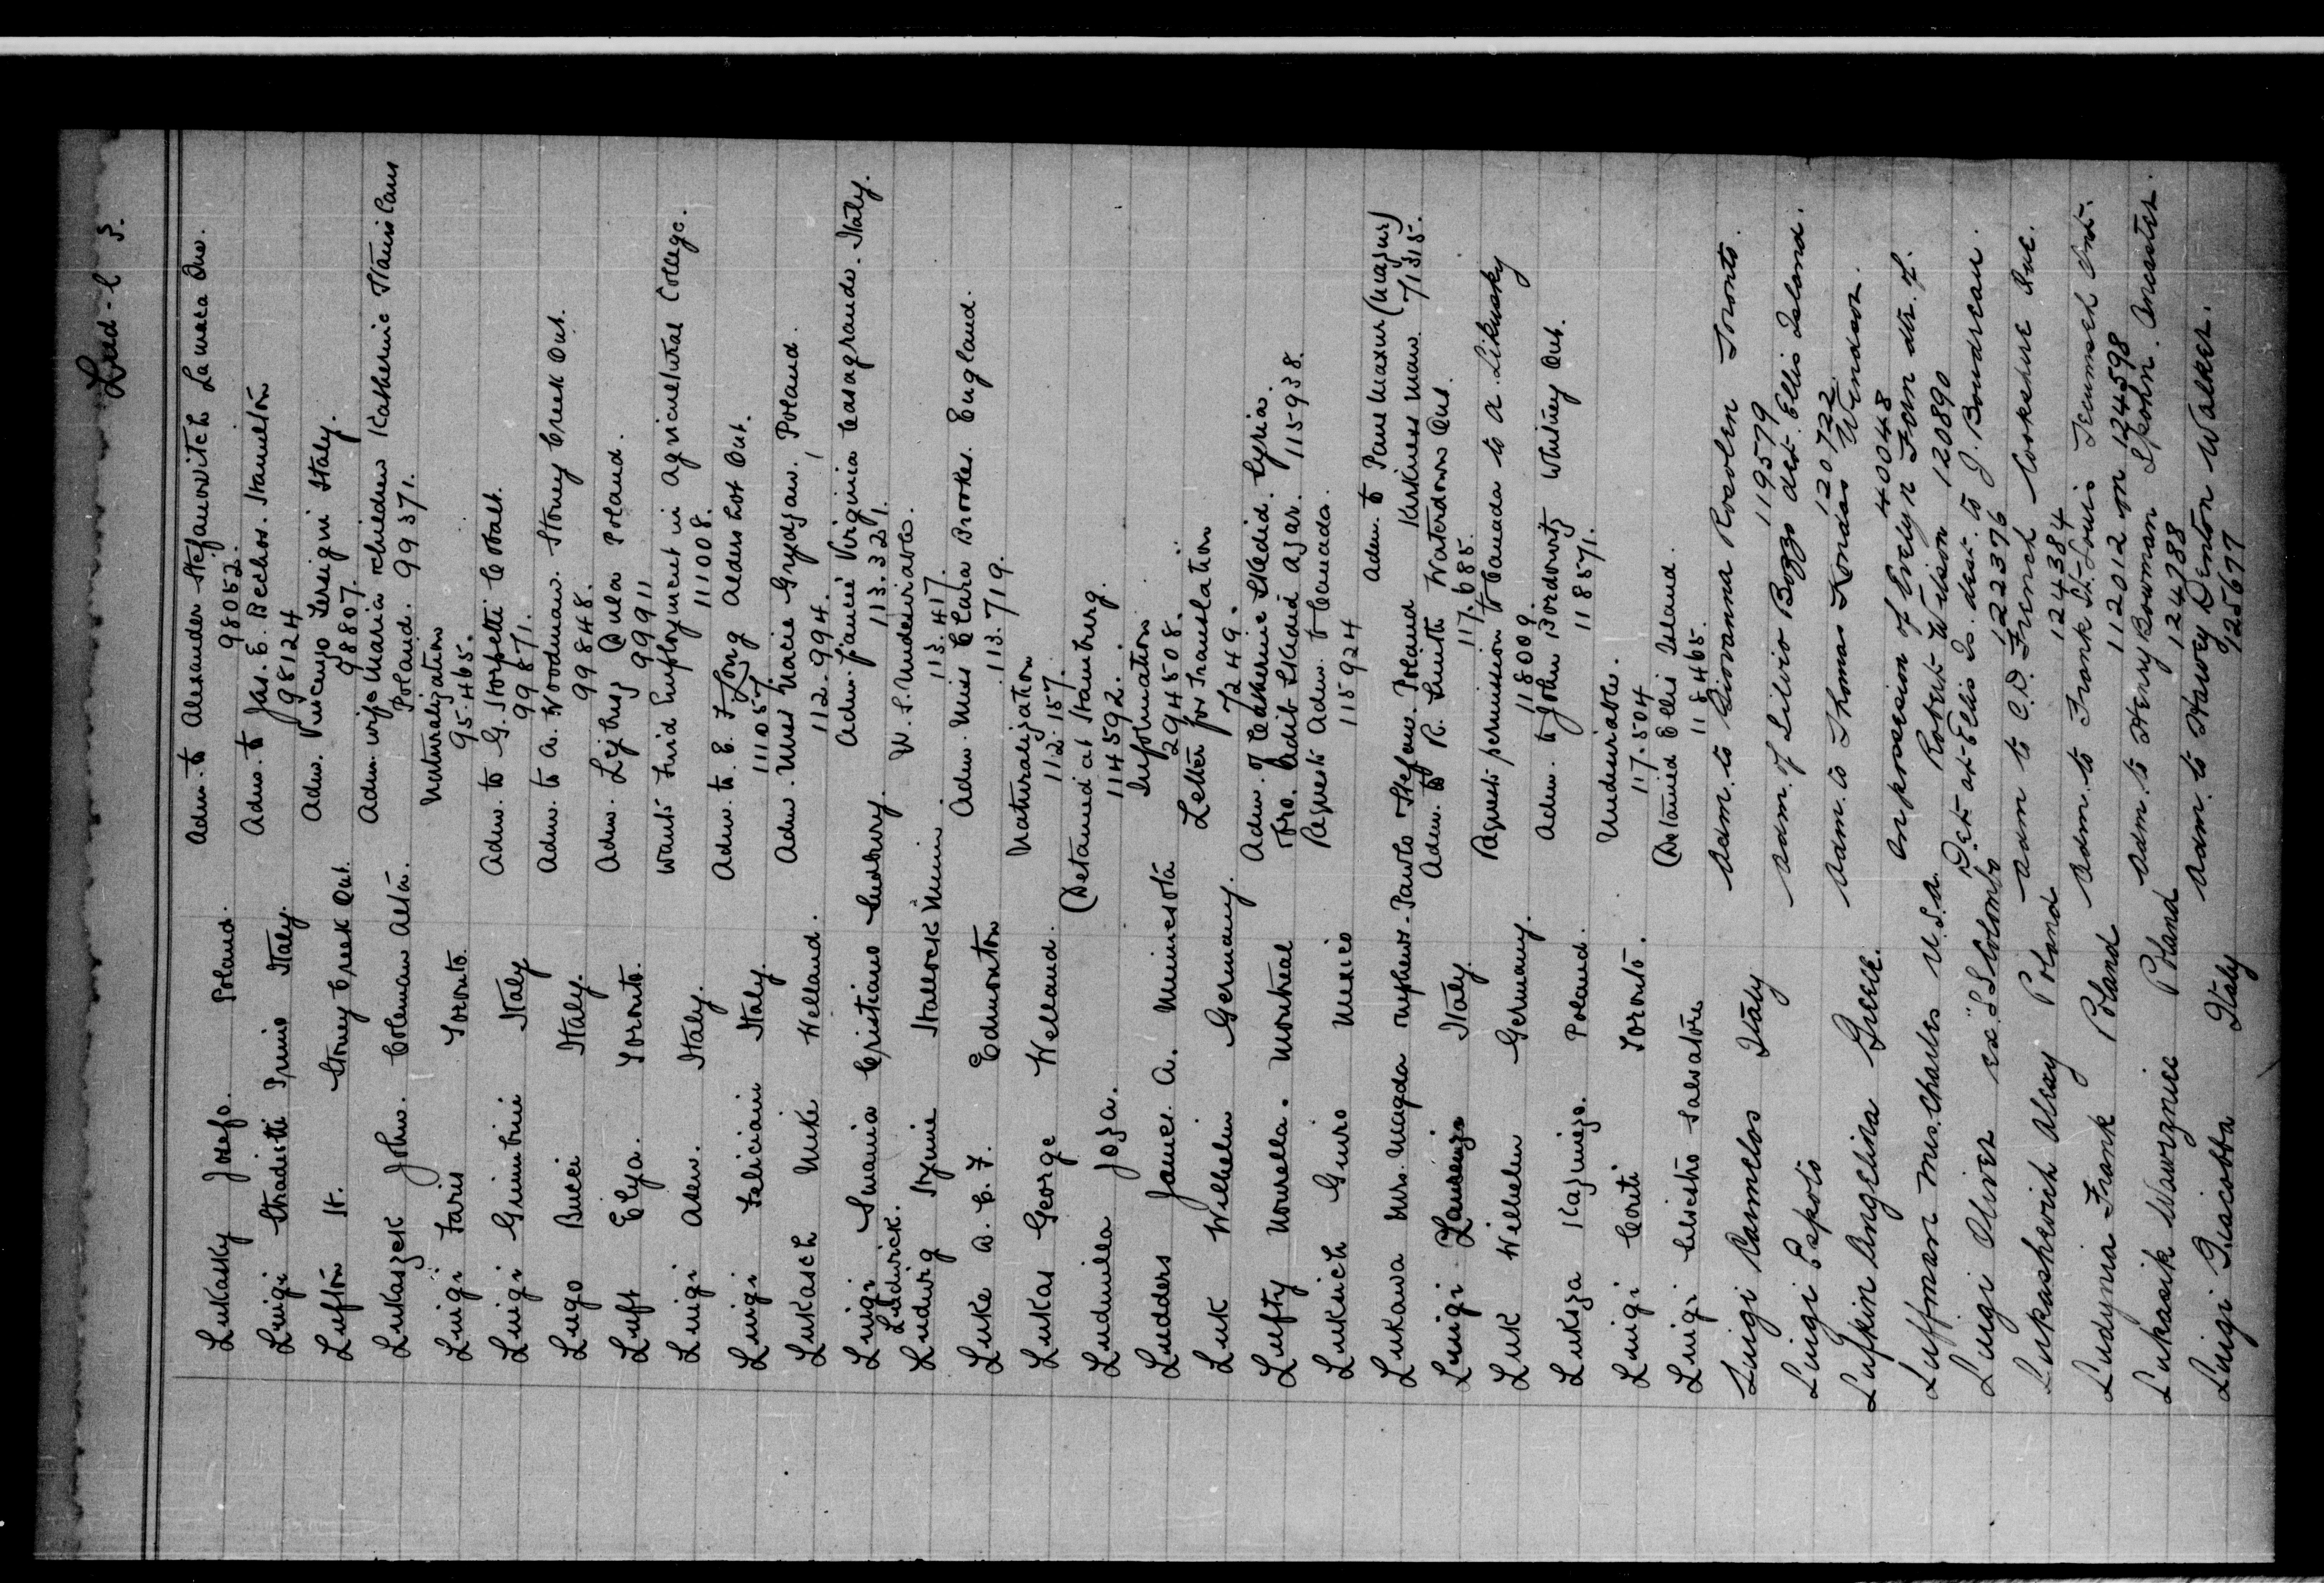 Lud-l 3.
Lukasky Josefo. Poland. Adm. to Alexander Stefanovitch Lamaca Que.
98052.
Luigi Stradiotti Primo Italy. Adm. to Jas. E. Bechos. Hamilton
98124
Lufton H. Stoney Creek Ont. Adm. Vincenzo Sersigni Italy.
98807.
Lukaszek John. Coleman Alta. Adm. wife Maria children Katherine Stanislaus
Poland. 99371.
Luigi Faris Toronto. Naturalization
95.465.
Luigi Grimbrini Italy Adm. to G. Storfetti Cobalt.
99871.
Lugo Bucci Italy. Adm. to A. Woodman. Stoney Creek Ont.
99848.
Luft Elya. Toronto. Adm. Lejbusz Dula Poland.
99911
Luigi Aden. Italy. Wants Find Employment in Agricultural College.
111008.
Luigi Feliciani Italy. Adm. to E. F. Long Aldershot Ont.
111057.
Lukasch Mike Welland. Adm. Miss Marie Grydzan, Poland.
112.994.
Luigi Smania Cristiano Sudbury. Adm. fiancee Virginia Casagrande. Italy.
113.321.
Ludwick.
Ludwig Stynie Hallock Minn. U.S. Undesirable.
113.417.
Luke A. E. F. Edmonton Adm. Miss Clara Brookes. England.
113.719.
Lukas George Welland. Naturalization
112.157.
Ludmilla Joza. (Detained at Hamburg.
114592.
Ludders James A. Minnesota Information
294508.
Luk Wilhelm Germany. Letter for Translation
7249.
Lufty Nourella. Montreal Adm. of Catherine Skedid. Syria.
Fro. Adib Skedid Azar. 115938.
Lukaich Guiro Mexico Requests Adm. to Canada.
115924
Lukawa Mrs. Magda nephews-Pawlo Stefan. Poland Adm. to Paul Maxur (Mazur)
Harkness Man. 71315.
Luigi Laurenzo Italy. Adm. to R. Smith Waterdown Ont.
117.685.
Luk Wilhelm Germany. Request permission to Canada to A. Likusaky
118009.
Luksza Kazmiezo. Poland. Adm. to John Bordowitz Whitney Ont.
118571.
Luigi Conti Toronto. Undesirable.
117.504
Luigi Silvestro Salvatore (Detained Ellis Island.
118465.
Luigi Camelos Italy Adm. to Giovanna Rosolen Toronto.
119579
Luigi Espoto Adm. of Silvio Bozzo det. Ellis Island.
120722
Lufkin Angelina Greece. Adm. to Thomas Kondas Windsor.
40048
Luffman Mrs. Charles U.S.A. on possession of Evelyn Fern dtr. of
Robert Wilson 120890
Luigi Oliver ex "SS Colombo Det. at Ellis Is. dest. to J. Boudreau.
122376
Lukashevich Alexy Poland Adm to C.D. French Cookshire Que.
124384
Ludynia Frank Poland Adm. to Frank St. Louis Tecumseh Ont.
112012 on 124598
Lukasik Wawrzniec Poland Adm. to Henry Bowman Spohn. Ancaster.
124788
Luigi Giacobba Italy Adm. to Harvey Denton Walker.
125677